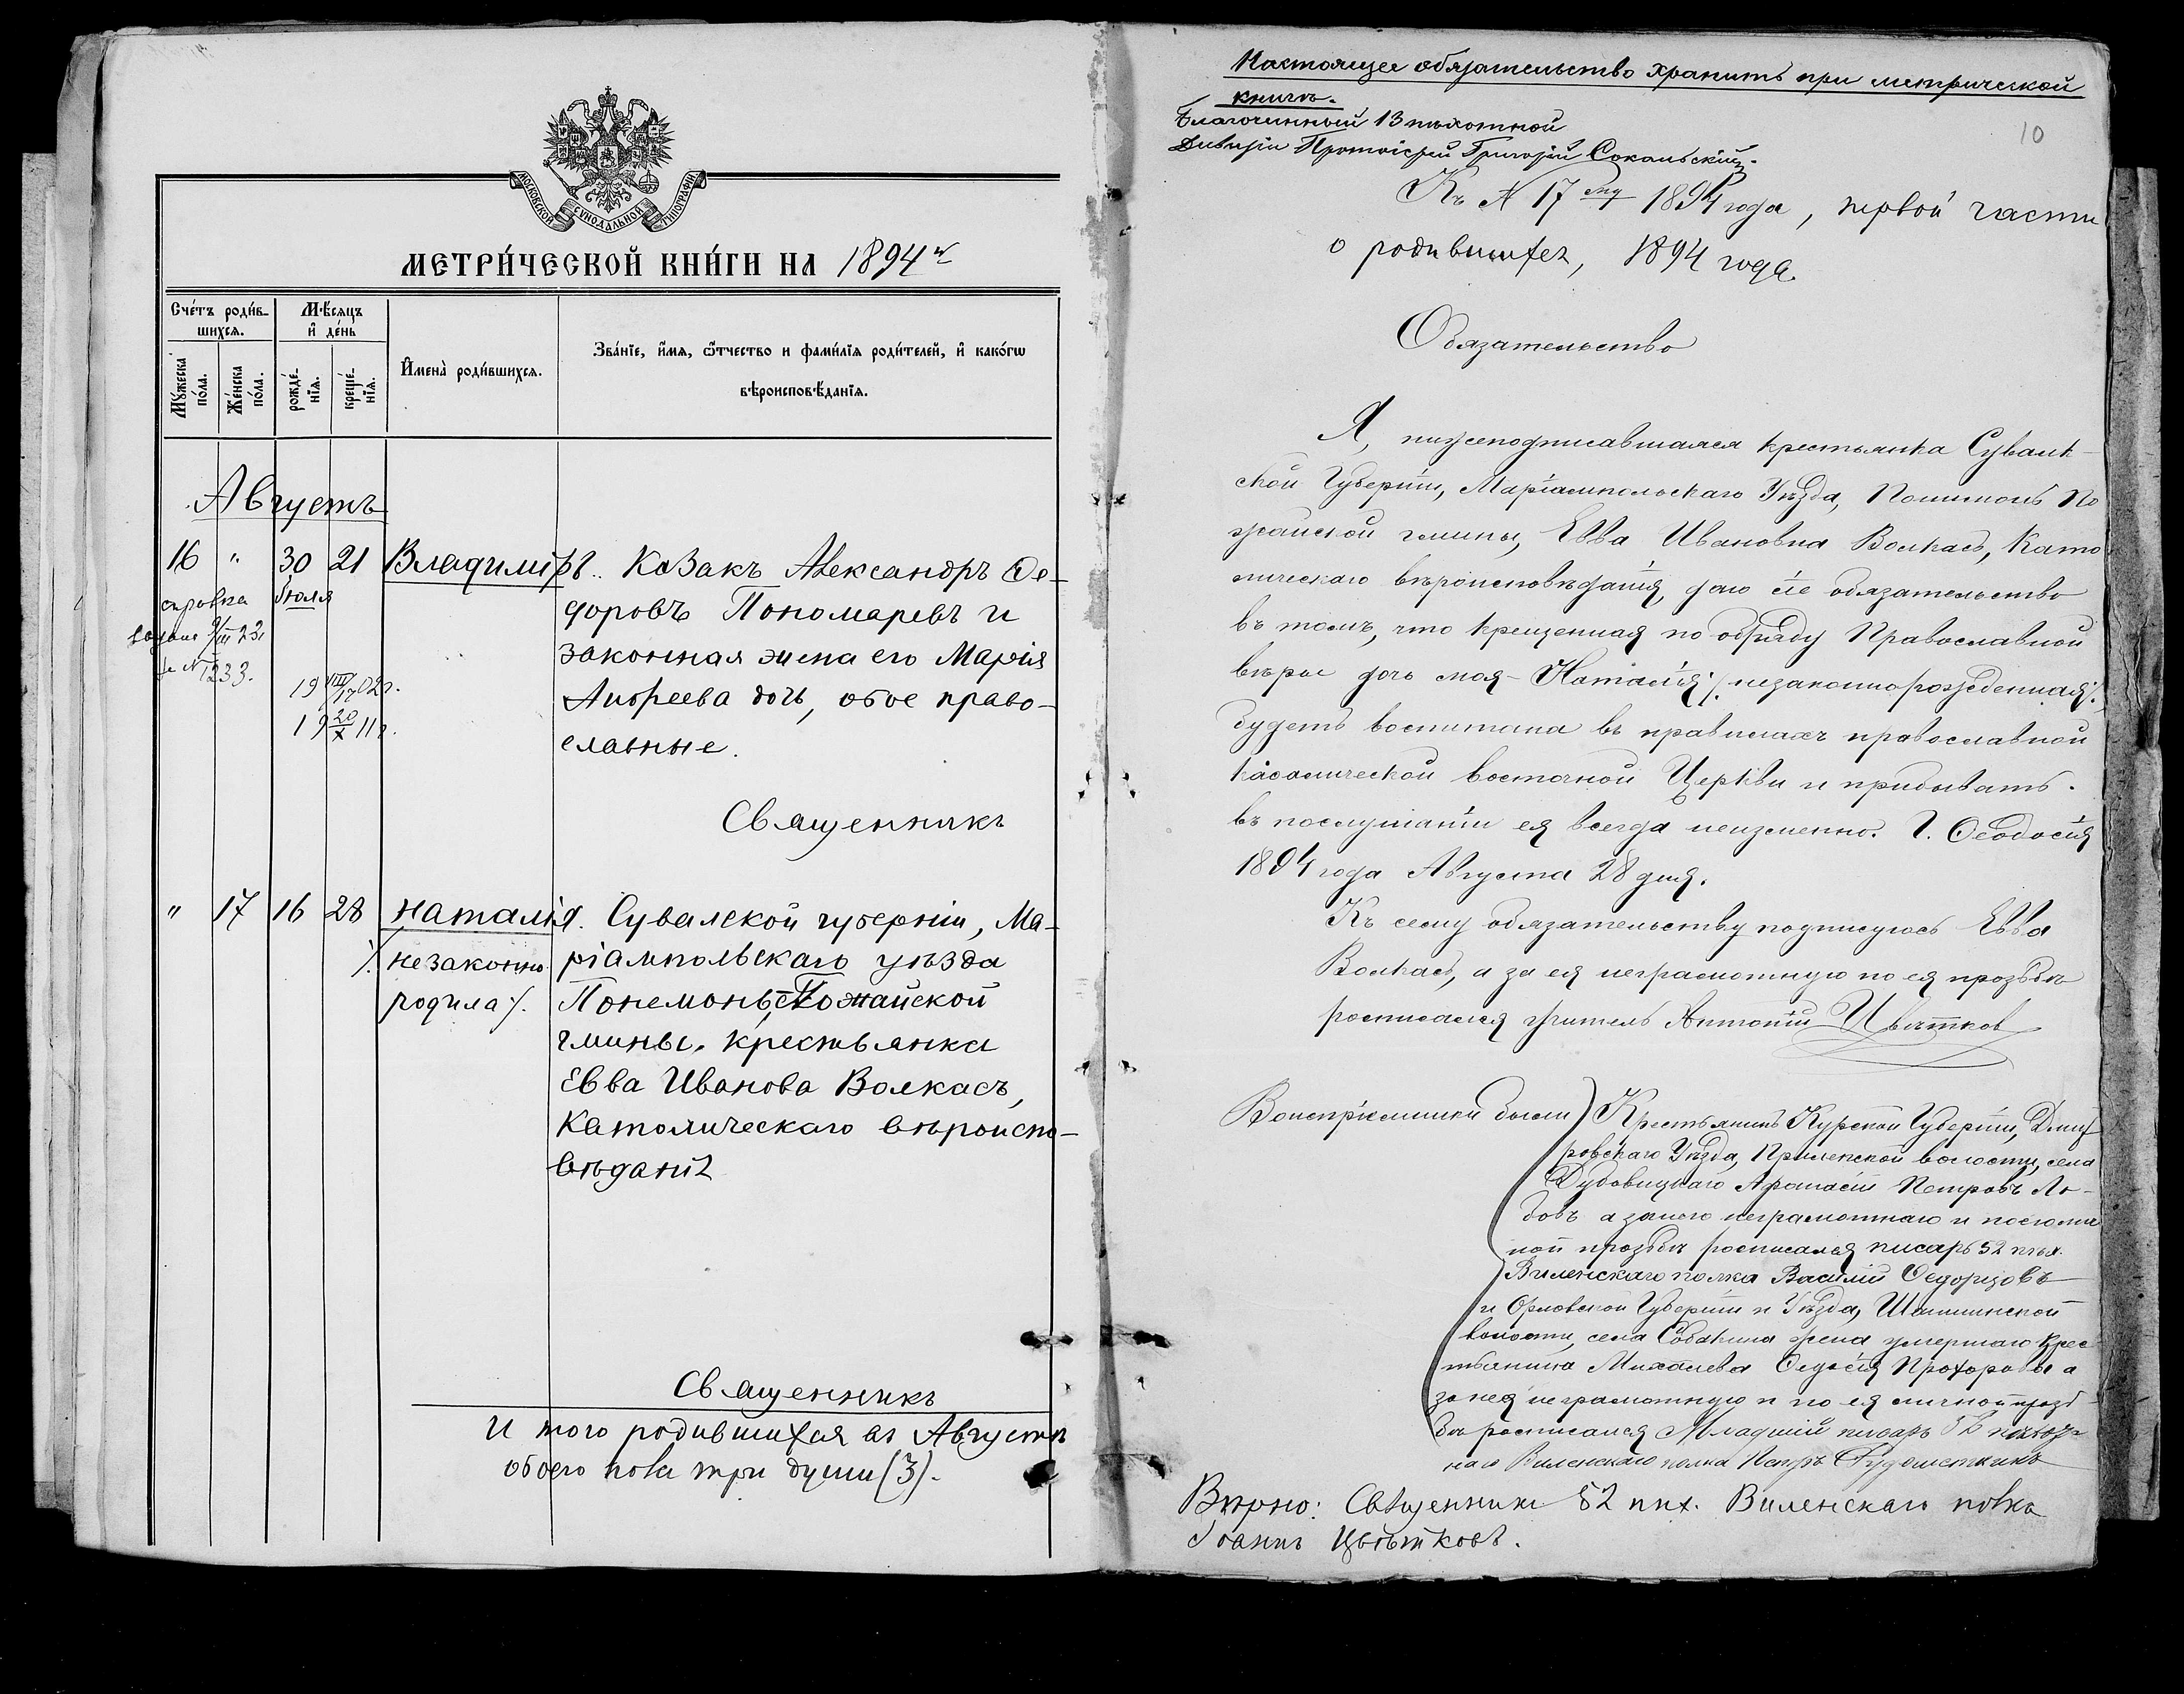 МОСКОВСКОЙ СѴНОДАЛЬНОЙ ТИПОГРАФІИ
МЕТРИ́ЧЕСКОЙ КНИ́ГИ НА 1894 г.
Сче́тъ роди́в-
шихся.
Мѣ́сяцъ
и҆ де́нь
Му́жеска
по́ла.
Же́нска
по́ла.
рожде́-
нїя.
креще́-
нїя.
И҆мена̀ роди́вшихся.
Зва́нїе, и҆́мя, ѻ҆́тчество и фами́лїя роди́телей, и҆ како́гѡ
вѣроисповѣ́данїя.
Августъ
16 " 30 21 Владиміръ. Козакъ Александръ Ѳе-
Іюля
доровъ Пономаревъ и
справка
законная жена его Марія
№ 1233.
Андреева дочь, обое право-
славные.
Священникъ
" 17 16 28 Наталія. Сувалской губерніи, Ма-
/. незаконно ріампольскаго уѣзда
родила /. Понемонь, Пожайской
гмины, крестьянка
Евва Иванова Волкасъ,
Католическаго вѣроиспо-
вѣданія
Священникъ
Итого родившихся въ Августѣ
обоего пола три души (3).
Настоящее обязательство хранить при метрической
книгѣ.
Благочинный 13 пѣхотной
Дивизіи Протоіерей Григорій Сокольскій.
10
Къ № 17 1894 года, первой части
о родившихся, 1894 года.
Обязательство
Я, нижеподписавшаяся крестьянка Сувалк-
ской Губерніи, Маріампольскаго Уѣзда, Понимонь По
жайской гмины, Евва Ивановна Волкасъ, Като
лическаго вѣроисповѣданія, даю сіе обязательство
въ томъ, что крещенная по обряду Православной
вѣры дочь моя - Наталія /. незаконнорожденная /.
будетъ воспитана въ правилахъ православной
каѳолической восточной Церкви и прибывать
въ послушаніи ея всегда неизменно. Г. Ѳеодосія
1894 года Августа 28 дня.
Къ сему обязательству подписуюсь Евва
Волкасъ, а за ея неграмотную по ея прозьбѣ
росписался учитель Антоній Цвѣтков
Воспріемники были Крестьянинъ Курской Губерніи, Дмит
ровскаго Уѣзда, волости, села
Дубовицкаго Афанасій Петровъ
а за него неграмотнаго и по его лич
ной прозьбѣ росписался писарь 52 пѣх.
Виленскаго полка Василій
и Орловской Губерніи и Уѣзда,
волости, села Собакина жена умершаго Крес
тьянина Михалева Прохорова а
за нея неграмотную и по ея личной прозь
бѣ росписался Младшій писарь 52 пѣхот-
наго Виленскаго полка Петръ
Вѣрно: Священникъ 52 пѣх. Виленскаго полка
Іоаннъ Цвѣтковъ.